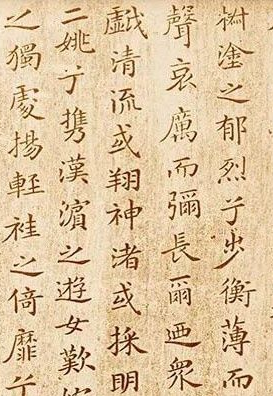 椒塗之郁烈兮步衡薄而
聲哀厲而彌長爾迺衆
戲清流或翔神渚或採明
二姚兮携漢濱之遊女歎
之獨處揚輕袿之倚靡兮